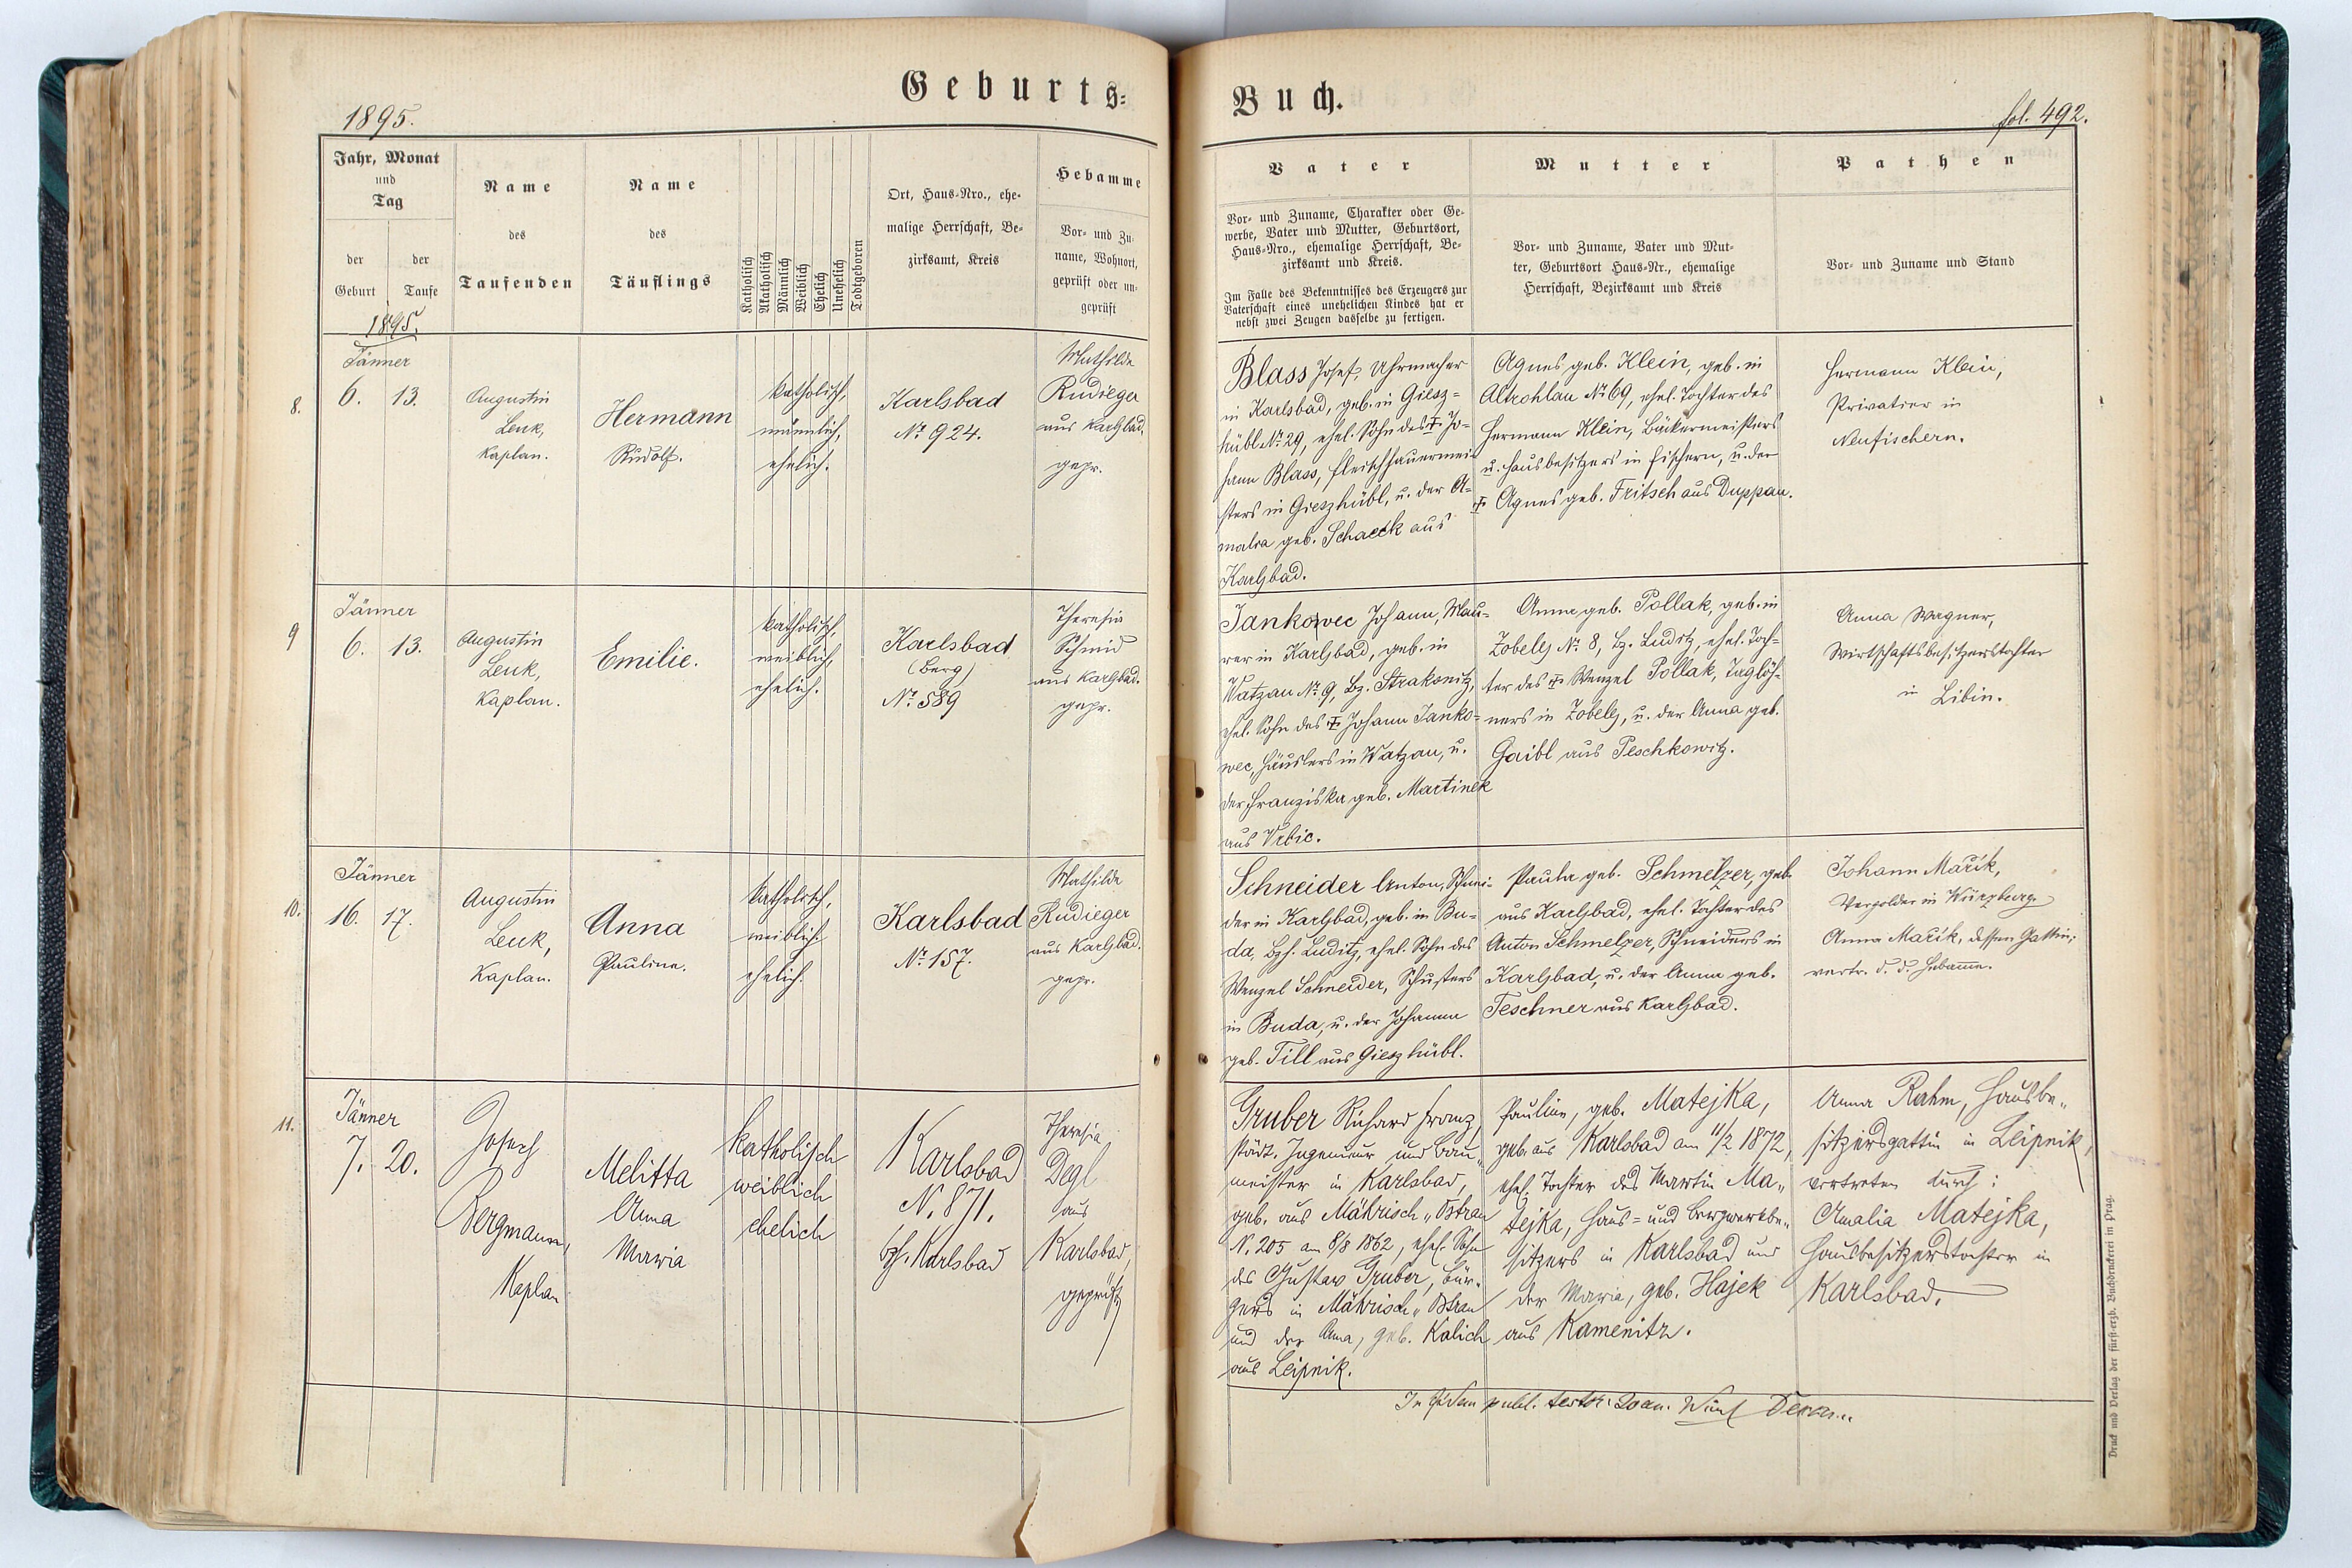 Geburts=
1895.
Jahr, Monat
und
Tag
der
Geburt
der
Taufe
Name
des
Taufenden
Name
des
Täuflings
Katholisch
Akatholisch
Männlich
Weiblich
Ehelich
Unehelich
Todtgeboren
Ort, Haus-Nro., ehe-
malige Herrschaft, Be-
zirksamt, Kreis
Hebamme
Vor- und Zu-
name, Wohnort,
geprüft oder un-
geprüft
1895.
8.
Jänner
6. 13.
Augustin
Leuk,
Kaplan.
Hermann
Rudolf.
katholisch,
männlich,
ehelich.
Karlsbad
No 924.
Mathilde
Rudieger
aus Karlsbad.
gepr.
9
Jänner
6. 13.
Augustin
Leuk,
Kaplan.
Emilie.
katholisch,
weiblich,
ehelich.
Karlsbad
(Berg)
No 589
Theresia
Schmid
aus Karlsbad.
gepr.
10.
Jänner
16. 17.
Augustin
Leuk,
Kaplan.
Anna
Pauline.
katholisch,
weiblich
ehelich.
Karlsbad
No 157.
Mathilde
Rudieger
aus Karlsbad.
gepr.
11.
Jänner
7. 20.
Josef
Bergmann,
Kaplan
Melitta
Anna
Maria
katholisch
weiblich
ehelich
Karlsbad
N. 871.
bzh. Karlsbad
Theresia
Degl
aus
Karlsbad,
geprüft
Buch.
fol. 492.
Vater
Vor- und Zuname, Charakter oder Ge-
werbe, Vater und Mutter, Geburtsort,
Haus-Nro., ehemalige Herrschaft, Be-
zirksamt und Kreis.
Im Falle des Bekenntnisses des Erzeugers zur
Vaterschaft eines unehelichen Kindes hat er
nebst zwei Zeugen dasselbe zu fertigen.
Mutter
Vor- und Zuname, Vater und Mut-
ter, Geburtsort Haus-Nr., ehemalige
Herrschaft, Bezirksamt und Kreis
Pathen
Vor- und Zuname und Stand
Blass Josef, Uhrmacher
in Karlsbad, geb. in Giesz=
hübl No 29, ehel. Sohn des † Jo=
hann Blass, Fleischhauermei=
sters in Gieszhübl, u. der A=
malia geb. Schaeck aus
Karlsbad.
Agnes geb. Klein, geb. in
Altrohlau No 69, ehel. Tochter des
Hermann Klein, Bäckermeisters
u. Hausbesitzers in Fischern, u. der
† Agnes geb. Fritsch aus Duppau.
Hermann Klein,
Privatier in
Neufischern.
Jankowec Johann, Mau=
rer in Karlsbad, geb. in
Watzau No 9, Bz. Strakonitz,
ehel. Sohn des † Johann Janko=
wec, Häuslers in Watzau, u.
der Franziska geb. Martinek
aus Vrbic.
Anna geb. Pollak, geb. in
Zobeles No 8, Bz. Luditz, ehel. Toch=
ter des † Wenzel Pollak, Taglöh=
ners in Zobeles, u. der Anna geb.
Gaibl aus Peschkowitz.
Anna Wagner,
Wirtschaftsbesitzerstochter
in Libin.
Schneider Anton, Schnei=
der in Karlsbad, geb. in Bu=
da, Bzh. Luditz, ehel. Sohn des
Wenzel Schneider, Schusters
in Buda, u. der Johanna
geb. Till aus Gieszhübl.
Paula geb. Schmelzer, geb.
aus Karlsbad, ehel. Tochter des
Anton Schmelzer, Schneiders in
Karlsbad, u. der Anna geb.
Teschner aus Karlsbad.
Johann Mařik,
Vergolder in Würzburg.
Anna Mařik, dessen Gattin,
vertr. d. d. Hebamme.
Gruber Richard Franz,
städt. Ingenieur und Bau„
meister in Karlsbad,
geb. aus Mährisch„Ostrau
N. 205 am 8/8 1862, ehel. Sohn
des Gustav Gruber, Bür„
gers in Mährisch„Ostrau
und der Anna, geb. Kalich
aus Leipnik.
Pauline, geb. Matejka,
geb. aus Karlsbad am 11/2 1872,
ehel. Tochter des Martin Ma„
tejka, Haus= und Bergwerkbe„
sitzers in Karlsbad und
der Maria, geb. Hajek
aus Kamenitz.
Anna Rahm, Hausbe„
sitzersgattin in Leipnik,
vertreten durch:
Amalia Matejka,
Hausbesitzerstochter in
Karlsbad.
In fidem publ. testor:
Druck und Verlag der fürst-erzb. Buchdruckerei in Prag.